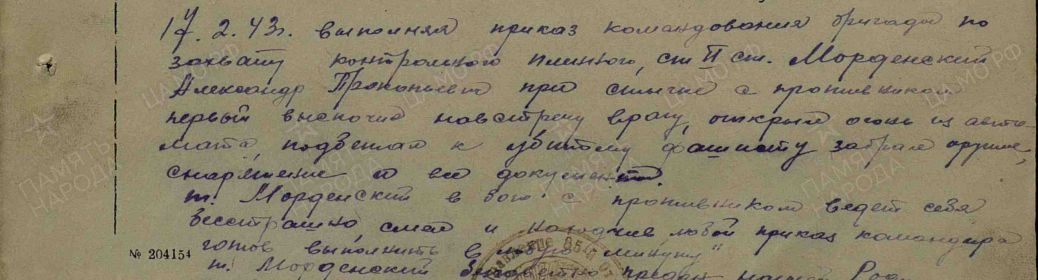 17.2.43г. выполняя приказ командования бригады по
захвату контрольного пленного, ст. II ст. Морденский
Александр Прокопьевич при стычке с противником
первый выскочил навстречу врагу, открыл огонь из авто-
мата, подбежал к убитому фашисту забрал оружие,
снаряжение и все документы.
т. Морденский в бою с противником ведет себя
бесстрашно, смел и находчив любой приказ командира
готов выполнить в любую минуту
№ 204154
т. Морденский предан нашей
ПАМЯТЬ НАРОДА
ЦАМО РФ